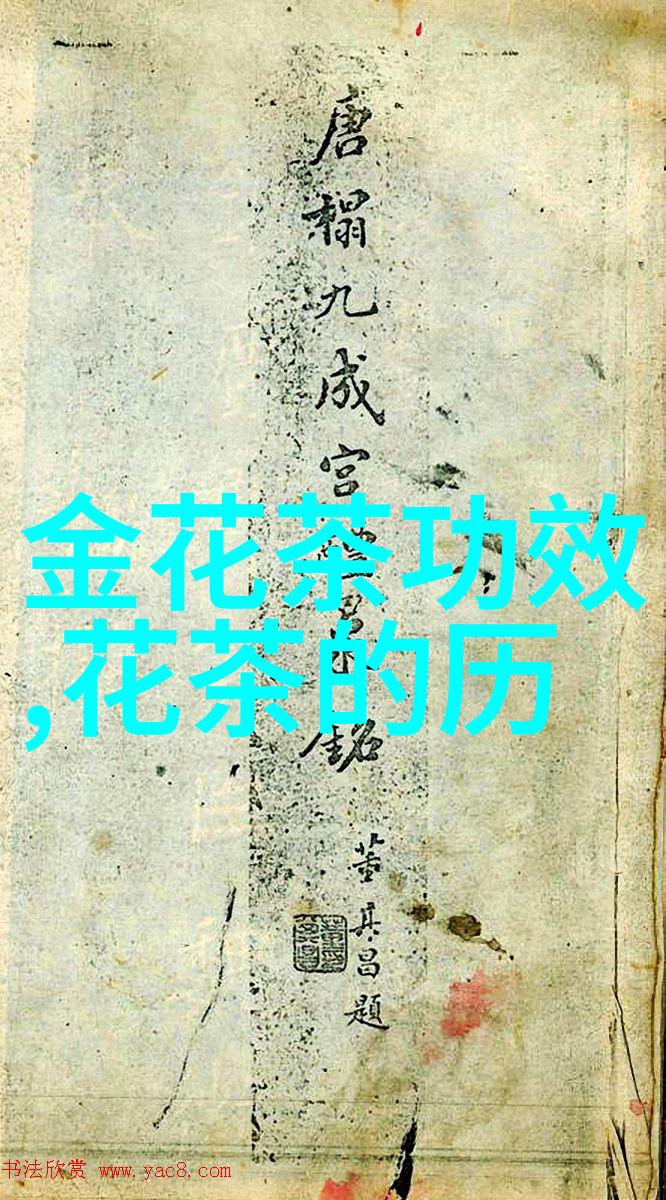 唐榻九成宫醴泉铭
董其昌题
金花茶功效
,花茶的历
书法欣赏 www.yac8.com